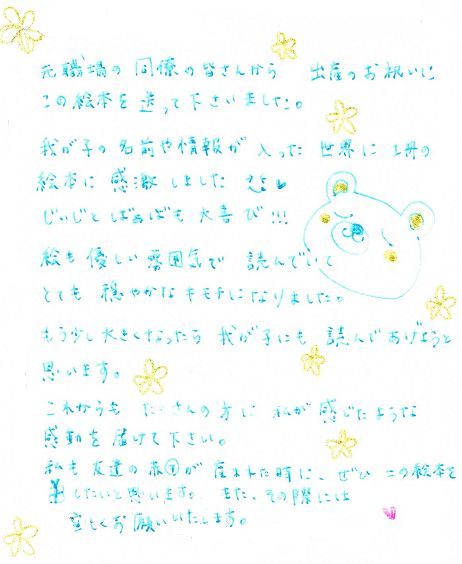 元職場の同僚の皆さんから 出産のお祝いに
この絵本を送って下さいました。
我が子の名前や情報が入った世界に1冊の
絵本に感激しました
じぃじとばぁばも大喜び!!!
絵も優しい雰囲気で 読んでいて
とても 穏やかなキモチになりました。
もう少し大きくなったら我が子にも読んであげようと
思います。
これからも たくさんの方に 私が感じたような
感動を届けて下さい。
私も友達の赤が産まれた時に、ぜひ この絵本を
したいと思います。また、その際には
宜しくお願いいたします。